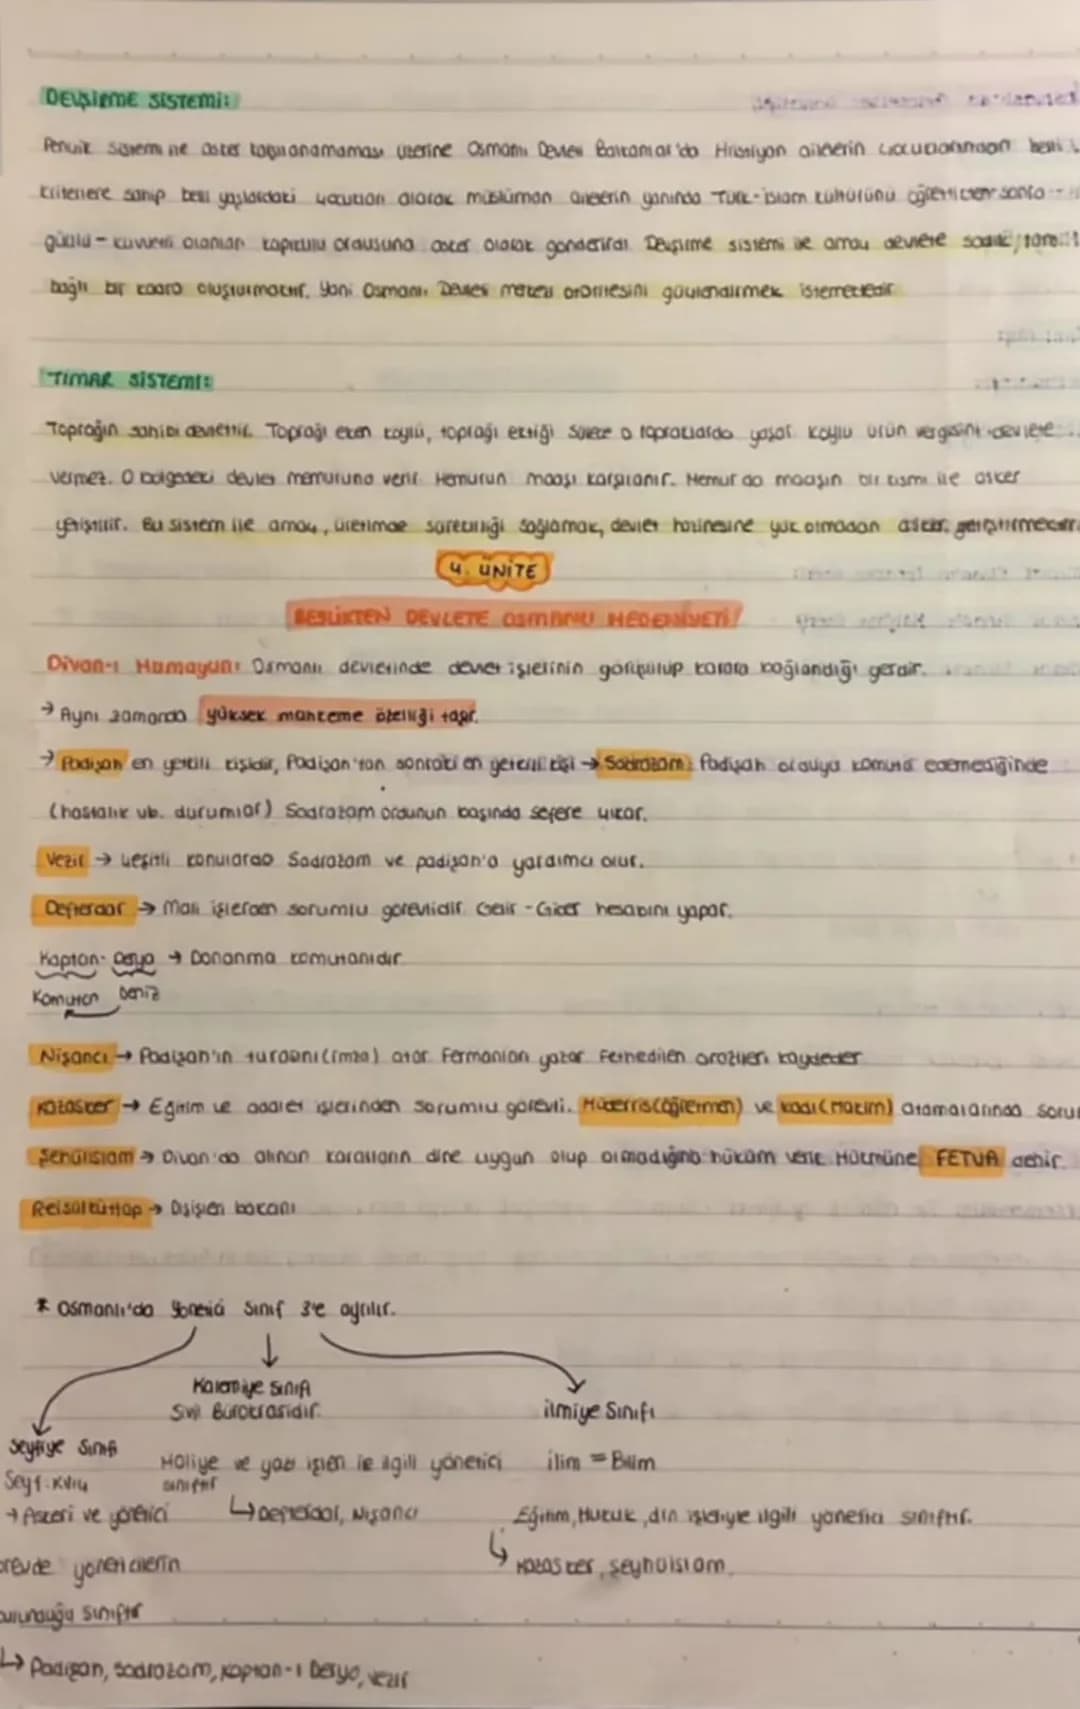 DEVŞİRME SİSTEMİ:
Pençik sistemi ile asker toplanamaması üzerine Osmanlı Devleti Balkanlar'da Hristiyan ailelerin çocuklarından belli
kriterlere sahip belli yaşlardaki çocukları alarak müslüman ailelerin yanında Türk-islam kültürünü öğrettikten sonra
güçlü-kuvvetli olanları kapıkulu ordusuna asker olarak gönderirdi. Devşirme sistemi ile amaç devlete sadık,
bağlı bir kadro oluşturmaktır. Yani Osmanlı Devleti merkezi otoritesini güçlendirmek istemektedir.
TIMAR SİSTEMİ:
Toprağın sahibi devlettir. Toprağı eken köylü, toprağı ektiği sürece o topraklarda yaşar. Köylü ürün vergisini devlete
vermez. O bölgedeki devlet memuruna verir. Memurun maaşı karşılanır. Memur da maaşın bir kısmı ile asker
yetiştirir. Bu sistem ile amaç, üretimde sürekliliği sağlamak, devlet hazinesine yük olmadan asker yetiştirmektir.
4. ÜNİTE
BEYLİKTEN DEVLETE OSMANLI MEDENİYETİ!
Divan-ı Hümayun: Osmanlı devletinde devlet işlerinin görüşülüp karara bağlandığı yerdir.
→ Aynı zamanda yüksek mahkeme özelliği taşır.
→ Padişah en yetkili kişidir, Padişah'tan sonraki en yetkili kişi → Sadrazam: Padişah orduya komuta edemediğinde
(hastalık vb. durumlar) Sadrazam ordunun başında sefere çıkar.
Vezir → Çeşitli konularda Sadrazam ve padişah'a yardımcı olur.
Defterdar → Mali işlerden sorumlu görevlidir. Gelir-Gider hesabını yapar.
Kaptan-Derya → Donanma komutanıdır.
Komutan Deniz
Nişancı → Padişah'ın turasını (imza) atar. Fermanları yazar. Fethedilen arazileri kaydeder
Kazasker → Eğitim ve adalet işlerinden sorumlu görevli. Müderris (öğretmen) ve kadı (Hakim) atamalarında soru
Şehülislam → Divan'da alınan kararların dine uygun olup olmadığına hüküm verir. Hükmüne FETVA denir.
Reisülküttap → Dışişleri bakanı
* Osmanlı'da Yönetici Sınıf 3'e ayrılır.
Kalemiye Sınıfı
Sivil Bürokrasidir.
ilmiye Sınıfı
Seyfiye Sınıfı
Maliye ve yazı işleri ile ilgili yönetici
ilim = Bilim
Seyf: Kılıç
sınıftır
→ Askeri ve yönetici
↳ Defterdar, Nişancı
Eğitim, Hukuk, din işleriyle ilgili yönetici sınıftır.
yöneticilerin
↳ Kazasker, şeyhülislam,
bulunduğu sınıftır
↳ Padişah, Sadrazam, Kaptan-ı Derya, vezir